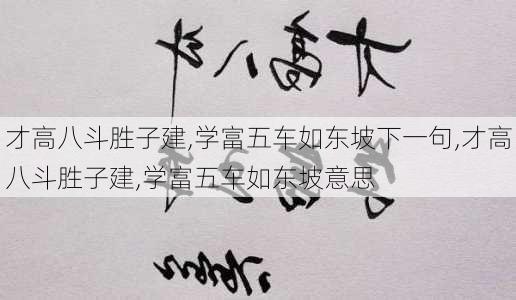 才高八斗
才高八斗胜子建,学富五车如东坡下一句,才高
八斗胜子建,学富五车如东坡意思